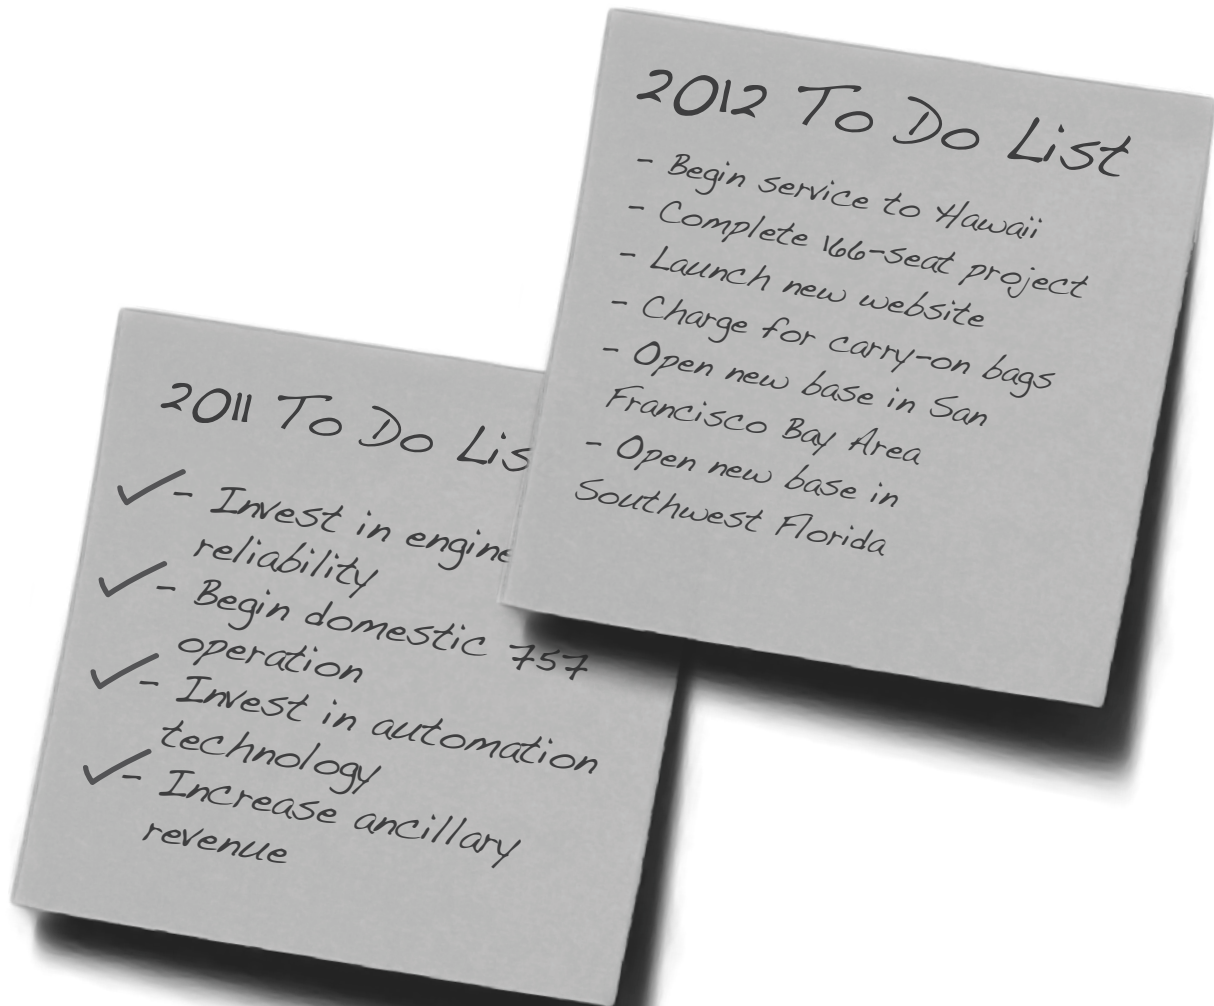 2012 To Do List
- Begin service to Hawaii
- Complete 166-seat project
- Launch new website
- Charge for carry-on bags
- Open new base in San
Francisco Bay Area
- Open new base in
Southwest Florida
2011 To Do Lis
- Invest in engine
reliability
- Begin domestic 757
operation
- Invest in automation
technology
- Increase ancillary
revenue